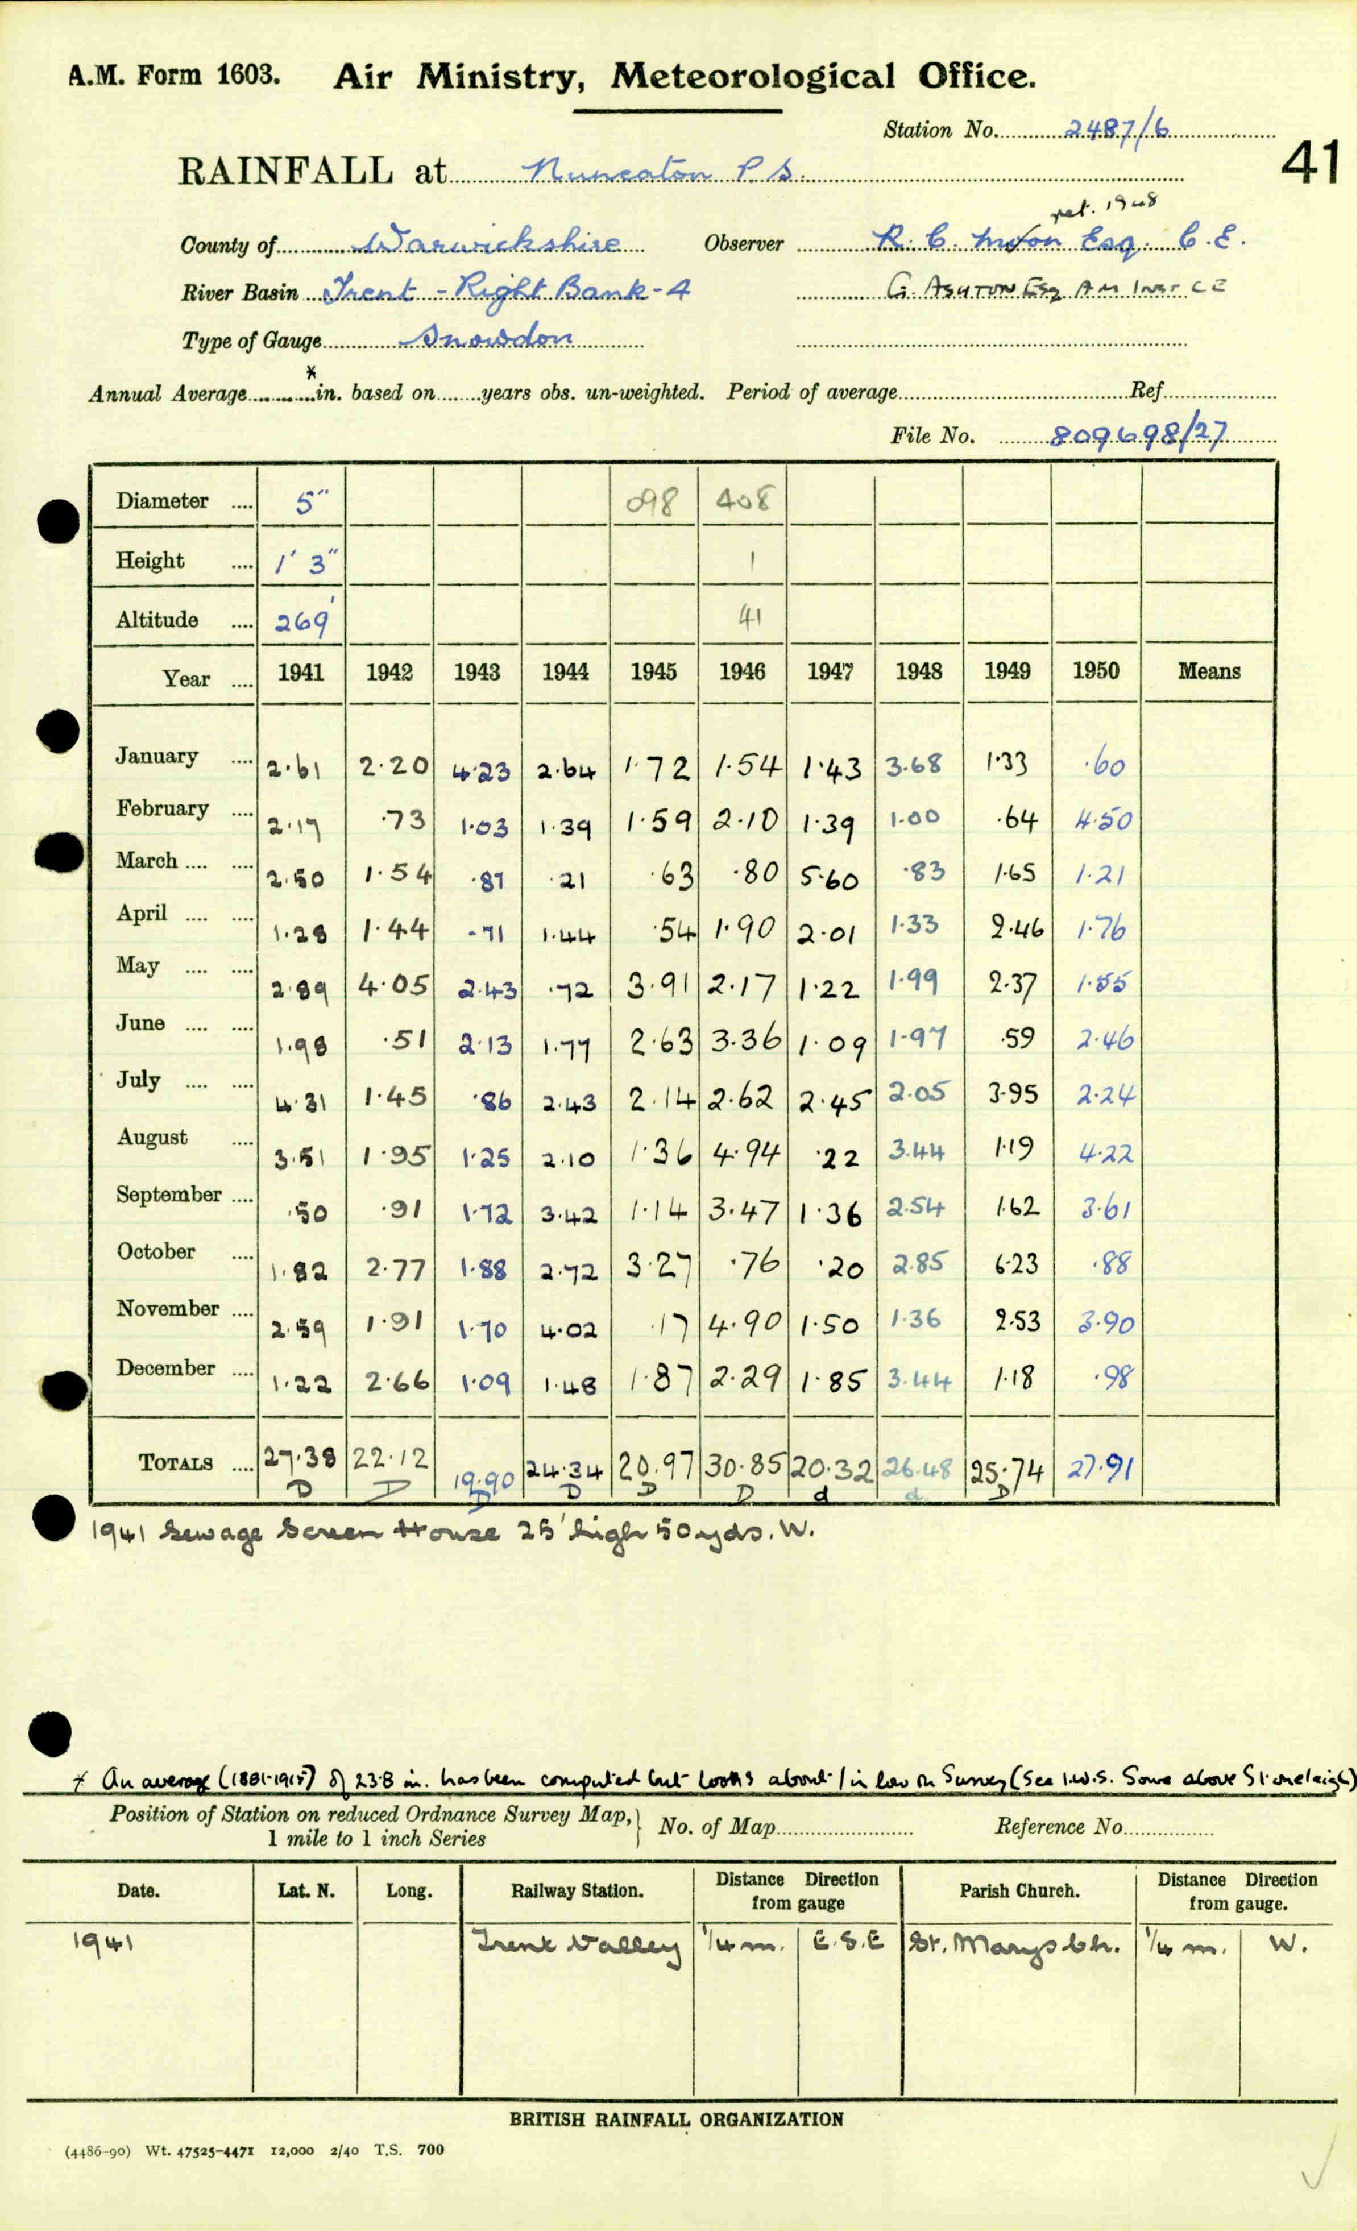 A.M. Form 1603. Air Ministry, Meteorological Office.
Station No. 2487/6
41
RAINFALL at Nuneaton P.S.
ret. 1948
County of Warwickshire Observer R. C. Moon Esq. C.E.
River Basin Trent - Right Bank - 4 G. ASHTON Esq A M Inst C E
Type of Gauge Snowdon
*
Annual Average in. based on years obs. un-weighted. Period of average Ref
File No. 809698/27
Diameter 5" 098 408
Height 1' 3" 1
Altitude 269' 41
Year 1941 1942 1943 1944 1945 1946 1947 1948 1949 1950 Means
January 2.61 2.20 4.23 2.64 1.72 1.54 1.43 3.68 1.33 .60
February 2.17 .73 1.03 1.39 1.59 2.10 1.39 1.00 .64 4.50
March 2.50 1.54 .87 .21 .63 .80 5.60 .83 1.65 1.21
April 1.28 1.44 .71 1.44 .54 1.90 2.01 1.33 2.46 1.76
May 2.89 4.05 2.43 .72 3.91 2.17 1.22 1.99 2.37 1.55
June 1.98 .51 2.13 1.77 2.63 3.36 1.09 1.97 .59 2.46
July 4.31 1.45 .86 2.43 2.14 2.62 2.45 2.05 3.95 2.24
August 3.51 1.95 1.25 2.10 1.36 4.94 .22 3.44 1.19 4.22
September .50 .91 1.72 3.42 1.14 3.47 1.36 2.54 1.62 3.61
October 1.82 2.77 1.88 2.72 3.27 .76 .20 2.85 6.23 .88
November 2.59 1.91 1.70 4.02 .17 4.90 1.50 1.36 2.53 3.90
December 1.22 2.66 1.09 1.48 1.87 2.29 1.85 3.44 1.18 .98
TOTALS 27.38 22.12 19.90 24.34 20.97 30.85 20.32 26.48 25.74 27.91
D D D D D D d d D
1941 Sewage Screen House 25' high 50 yds. W.
* An average (1881-1915) of 23.8 in. has been computed but looks about 1 in low on Survey (See I.W.S. Sowe above Stoneleigh)
Position of Station on reduced Ordnance Survey Map, 1 mile to 1 inch Series } No. of Map Reference No.
Date. Lat. N. Long. Railway Station. Distance Direction from gauge Parish Church. Distance Direction from gauge.
1941 Trent Valley 1/4 m. E.S.E St. Marys Ch. 1/4 m. W.
BRITISH RAINFALL ORGANIZATION
(4486-90) Wt. 47525-4471 12,000 2/40 T.S. 700